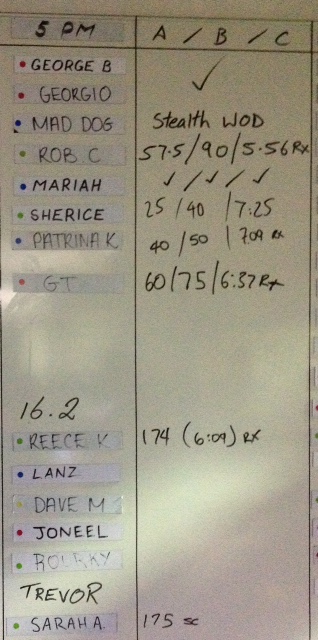 5 PM A / B / C
GEORGE B ✓
GEORGIO
MAD DOG Stealth WOD
ROB C 57.5/90/5.56 Rx
MARIAH ✓ / ✓ / ✓
SHERICE 25 / 40 / 7:25
PATRINA K 40 / 50 / 7:09 Rx
GT 60/75/6:37 Rx
16.2
REECE K 174 (6:09) RX
LANZ
DAVE M
JONEEL
TREVOR
SARAH A. 175 sc